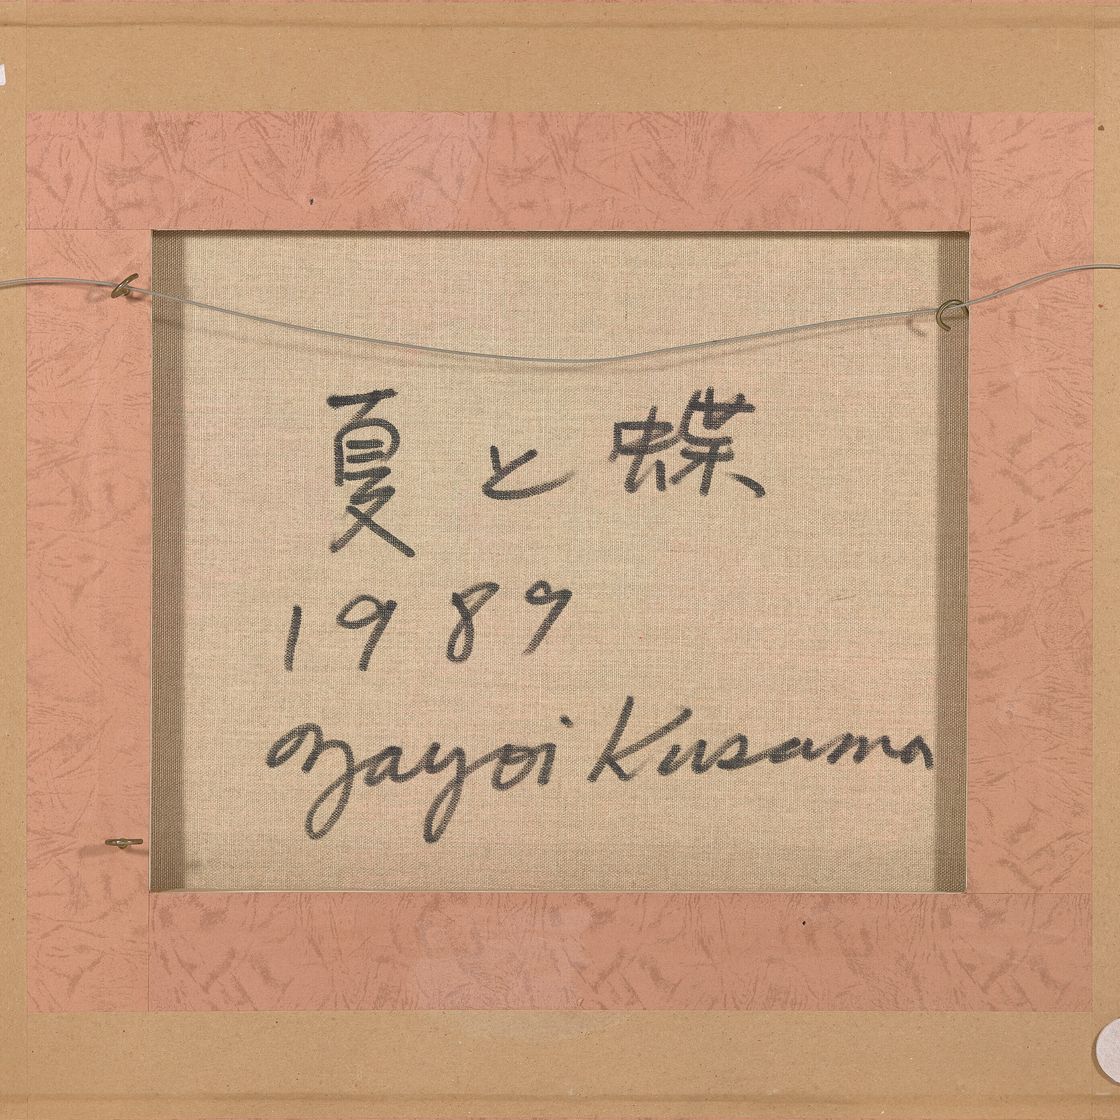 夏と蝶
1989
Yayoi Kusama